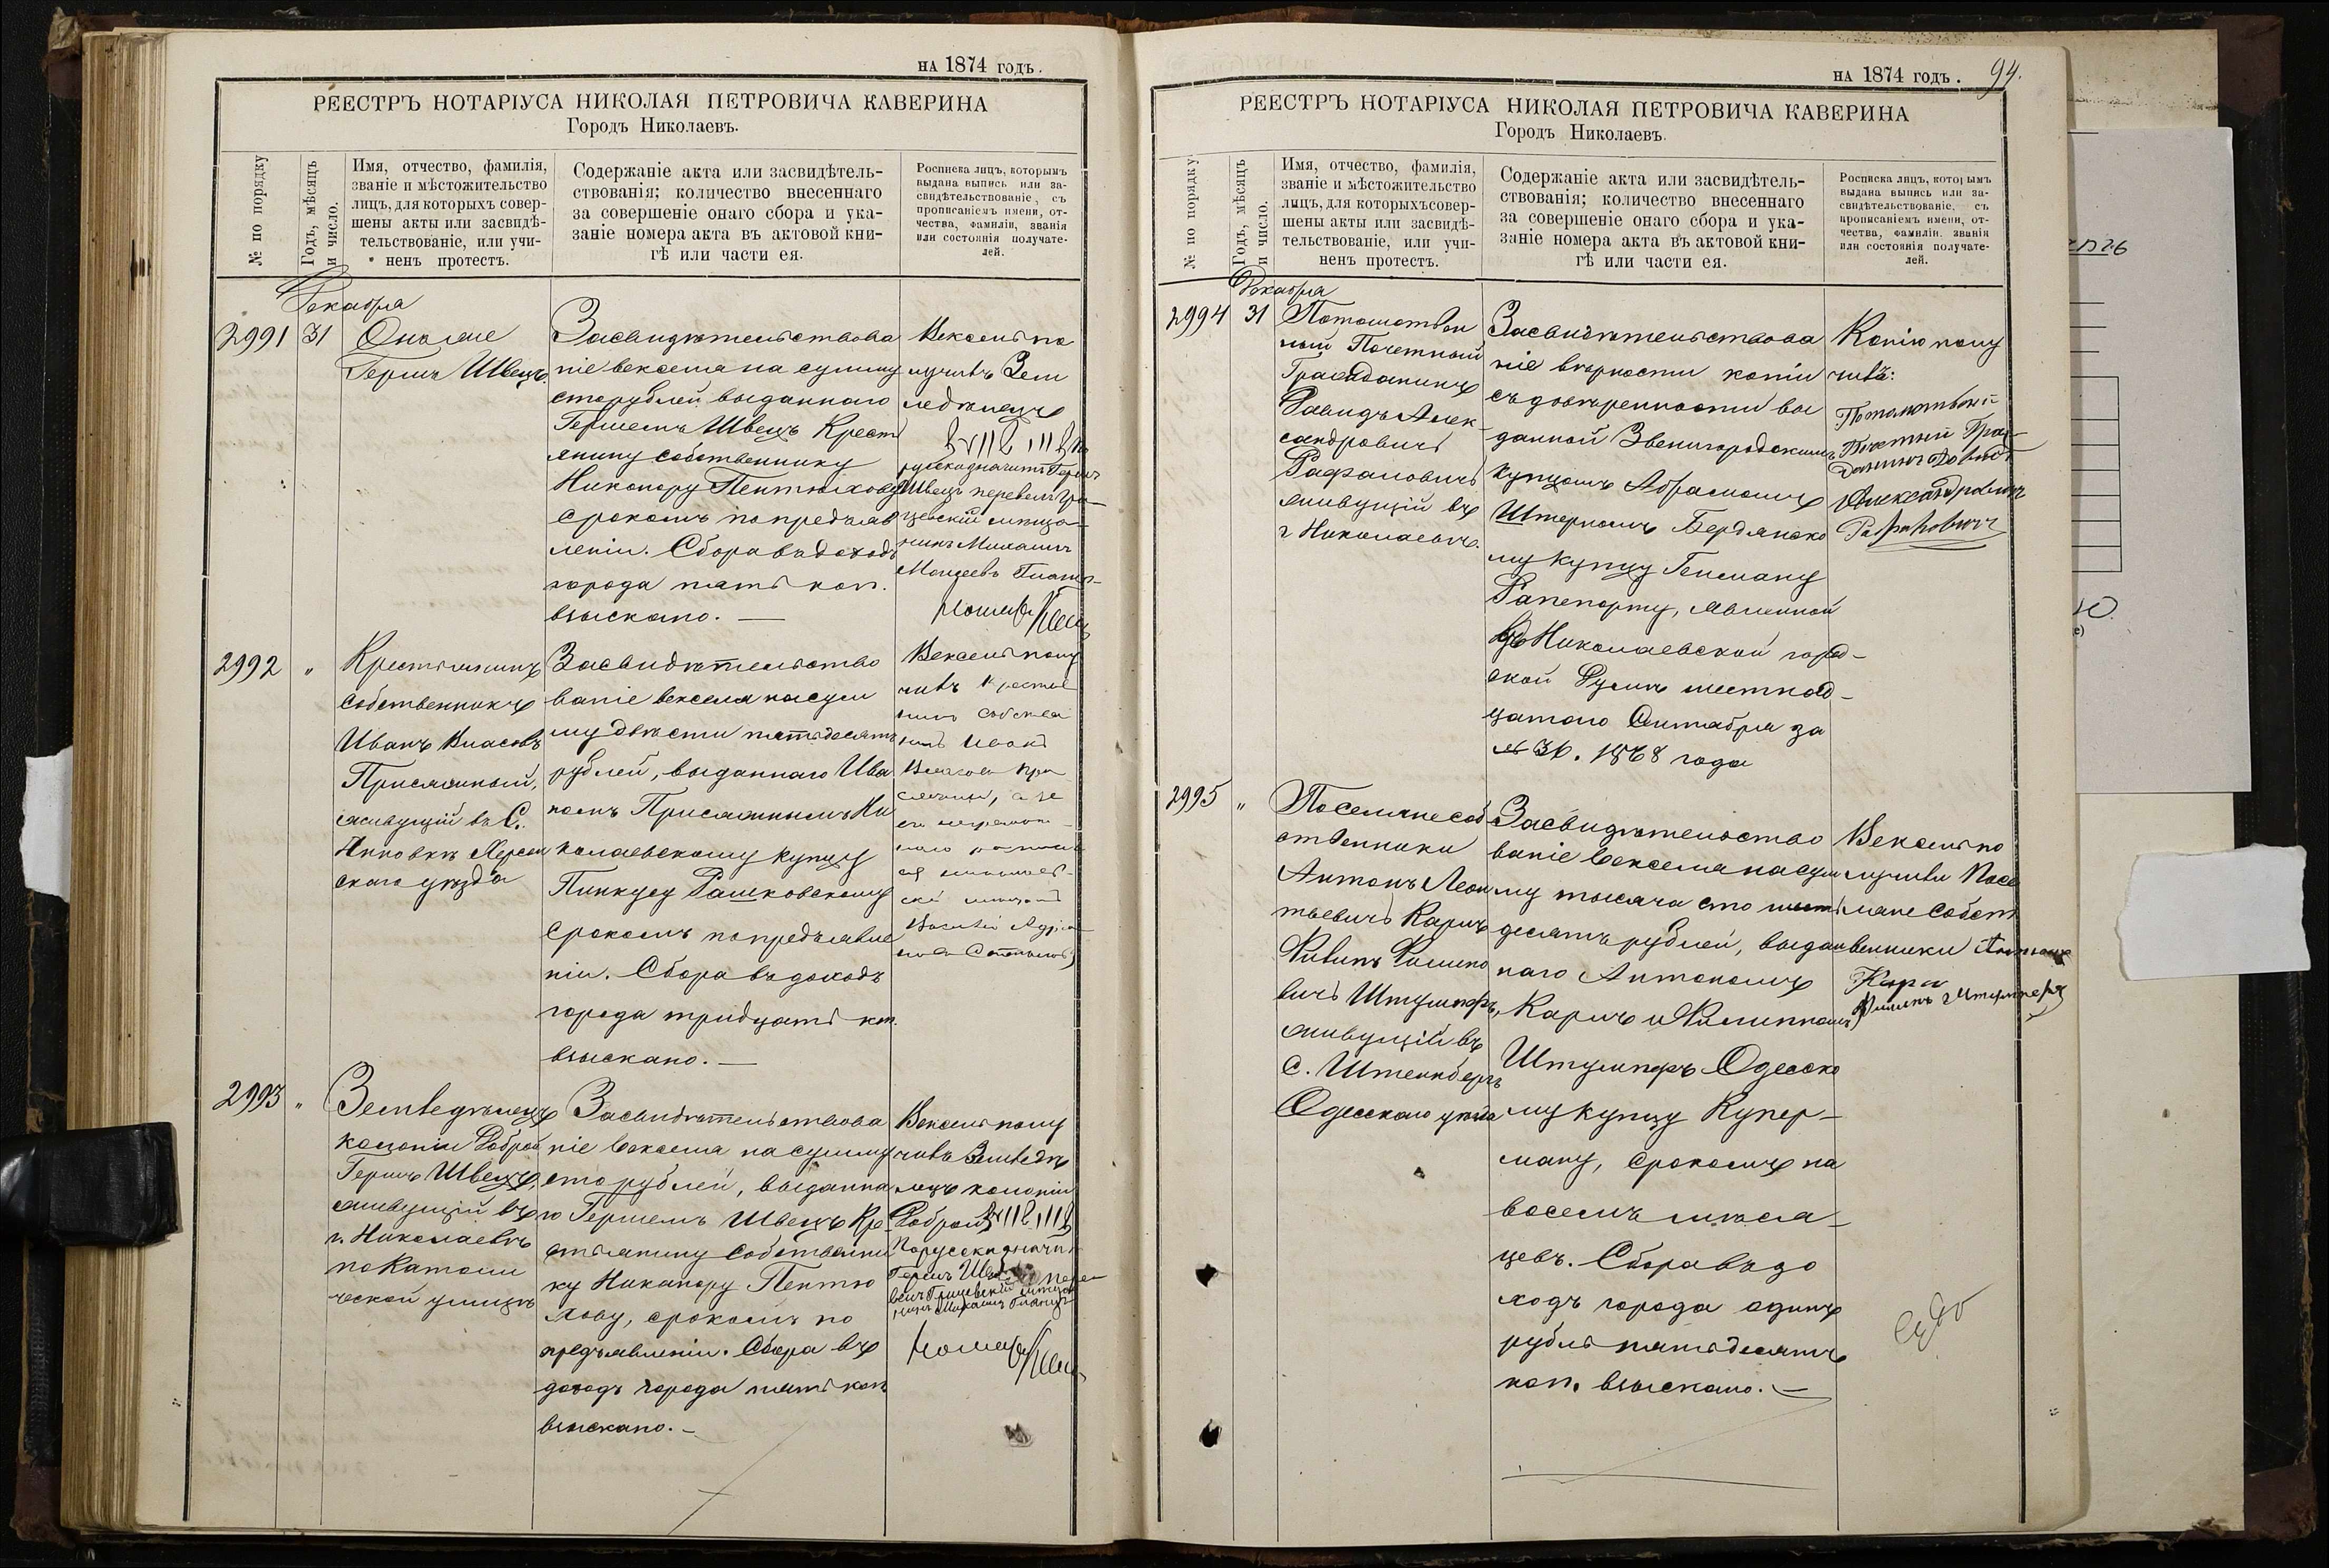 НА 1874 годъ.
РЕЕСТРЪ НОТАРІУСА НИКОЛАЯ ПЕТРОВИЧА КАВЕРИНА
Городъ Николаевъ.
№ по порядку
Годъ, мѣсяцъ
и число.
Имя, отчество, фамилія,
званіе и мѣстожительство
лицъ, для которыхъ совер-
шены акты или засвидѣ-
тельствованіе, или учи-
ненъ протестъ.
Содержаніе акта или засвидѣтель-
ствованія; количество внесеннаго
за совершеніе онаго сбора и ука-
заніе номера акта въ актовой кни-
гѣ или части ея.
Росписка лицъ, которымъ
выдана выпись или за-
свидѣтельствованіе, съ
прописаніемъ имени, от-
чества, фамиліи, званія
или состоянія получате-
лей.
Декабря
2991
31
Герш Швецъ.
Засвидѣтельствова
ніе векселя на сумму
сто рублей выданнаго
Гершемъ Швецъ Крест
янину собственнику
Никонору Пентюхову
срокомъ по предъяв
леніи. Сбора въ доходъ
города пять коп.
взыскано. —
Вексель по
лучилъ Зем
ледѣлецъ
русски значитъ Гершъ
Швецъ перевелъ
Михаилъ
2992
"
Крестьянинъ
собственникъ
Иванъ Власовъ
Присяжный,
живущій въ С.
Анновкѣ Херсон
скаго уѣзда
Засвидѣтельство
ваніе векселя на сум
му двѣсти пятьдесятъ
рублей, выданнаго Ива
номъ Присяжнымъ Ни
колаевскому купцу
Пинкусу Рашковскому
срокомъ по предъявле
ніи. Сбора въ доходъ
города тридцать коп.
взыскано. —
Вексель полу
чилъ Крестья
нинъ собствен
никъ Иванъ
Власовъ При
сяжный, а за
его неграмот
2993
"
Земледѣлецъ
колоніи Доброй
Гершъ Швецъ,
живущій въ
г. Николаевѣ
по Католи
ческой улицѣ
Засвидѣтельствова
ніе векселя на сумму
сто рублей, выданна
го Гершемъ Швецъ Кре
стьянину собственни
ку Никонору Пентю
хову, срокомъ по
предъявленіи. Сбора въ
доходъ города пять коп
взыскано. —
Вексель полу
чилъ Земледѣ
лецъ колоніи
Доброй
По русски значитъ
Гершъ
НА 1874 годъ.
94.
РЕЕСТРЪ НОТАРІУСА НИКОЛАЯ ПЕТРОВИЧА КАВЕРИНА
Городъ Николаевъ.
№ по порядку
Годъ, мѣсяцъ
и число.
Имя, отчество, фамилія,
званіе и мѣстожительство
лицъ, для которыхъ совер-
шены акты или засвидѣ-
тельствованіе, или учи-
ненъ протестъ.
Содержаніе акта или засвидѣтель-
ствованія; количество внесеннаго
за совершеніе онаго сбора и ука-
заніе номера акта въ актовой кни-
гѣ или части ея.
Росписка лицъ, которымъ
выдана выпись или за-
свидѣтельствованіе, съ
прописаніемъ имени, от-
чества, фамиліи, званія
или состоянія получате-
лей.
Декабря
2994
31
Потомствен
ный Почетный
Гражданинъ
Давидъ Алек
сандровичъ
Рафаловичъ
живущій въ
г Николаевѣ.
Засвидѣтельствова
ніе вѣрности копіи
съ довѣренности вы
данной Звенигородскимъ
купцомъ Абрамомъ
Штерномъ Бердянско
му купцу Генману
Рапепорту, явленной
въ Николаевской город-
ской Думѣ шестнад-
цатаго Октября за
№ 36. 1868 года
Копію полу
чилъ:
Потомственный
Почетный Граж
данинъ Давидъ
Александровичъ
Рафаловичъ
2995
"
Поселяне соб
ственники
Антонъ Леон
тьевичъ Карпъ
Филипъ Филипо
вичъ Штумпфъ,
живущій въ
с. Штейнбергъ
Одесскаго уѣзда
Засвидѣтельство
ваніе векселя на сум
му тысяча сто шесть
десятъ рублей, выдан
наго Антономъ
Карпъ и Филиппомъ
Штумпфъ Одесско
му купцу Купер-
ману, срокомъ на
восемь мѣся-
цевъ. Сбора въ до
ходъ города одинъ
рубль пятьдесятъ
коп. взыскано. —
Вексель по
лучили Посе
ляне собст
венники Антонъ
Карп
Филипъ Штумпфъ